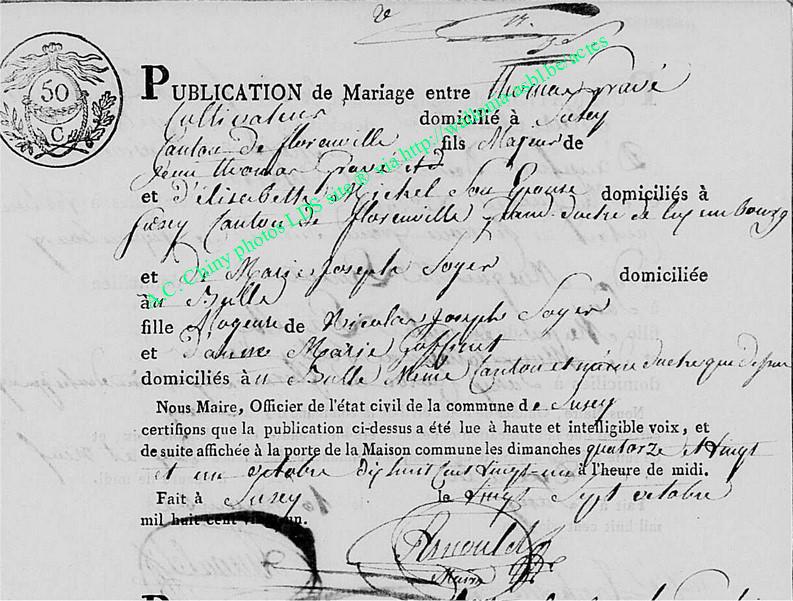 50
C
PUBLICATION de Mariage entre thomas gravé
Cultivateur domicilié à Susey
Canton de florenville fils Majeur de
Jean thomas gravé et
et d'élisabette Michel Son Epouse domiciliés à
Susey Canton de florenville grand duché de luxembourg
et de Marie Josephe Soyer domiciliée
à Bulle
fille Mageure de Nicolas Joseph Soyer
et d'anne Marie Goffinet
domiciliés à Bulle Même Canton et même duché que
Nous Maire, Officier de l'état civil de la commune de Susey
certifions que la publication ci-dessus a été lue à haute et intelligible voix, et
de suite affichée à la porte de la Maison commune les dimanches quatorze et Vingt
et un octobre dix huit Cent Vingt-un à l'heure de midi.
Fait à Susey le Vingt Sept octobre
mil huit cent vingt-un.
Arnoulet
Maire
A.C. Chiny photos LDS site ® via http://wallonia-asbl.be/actes